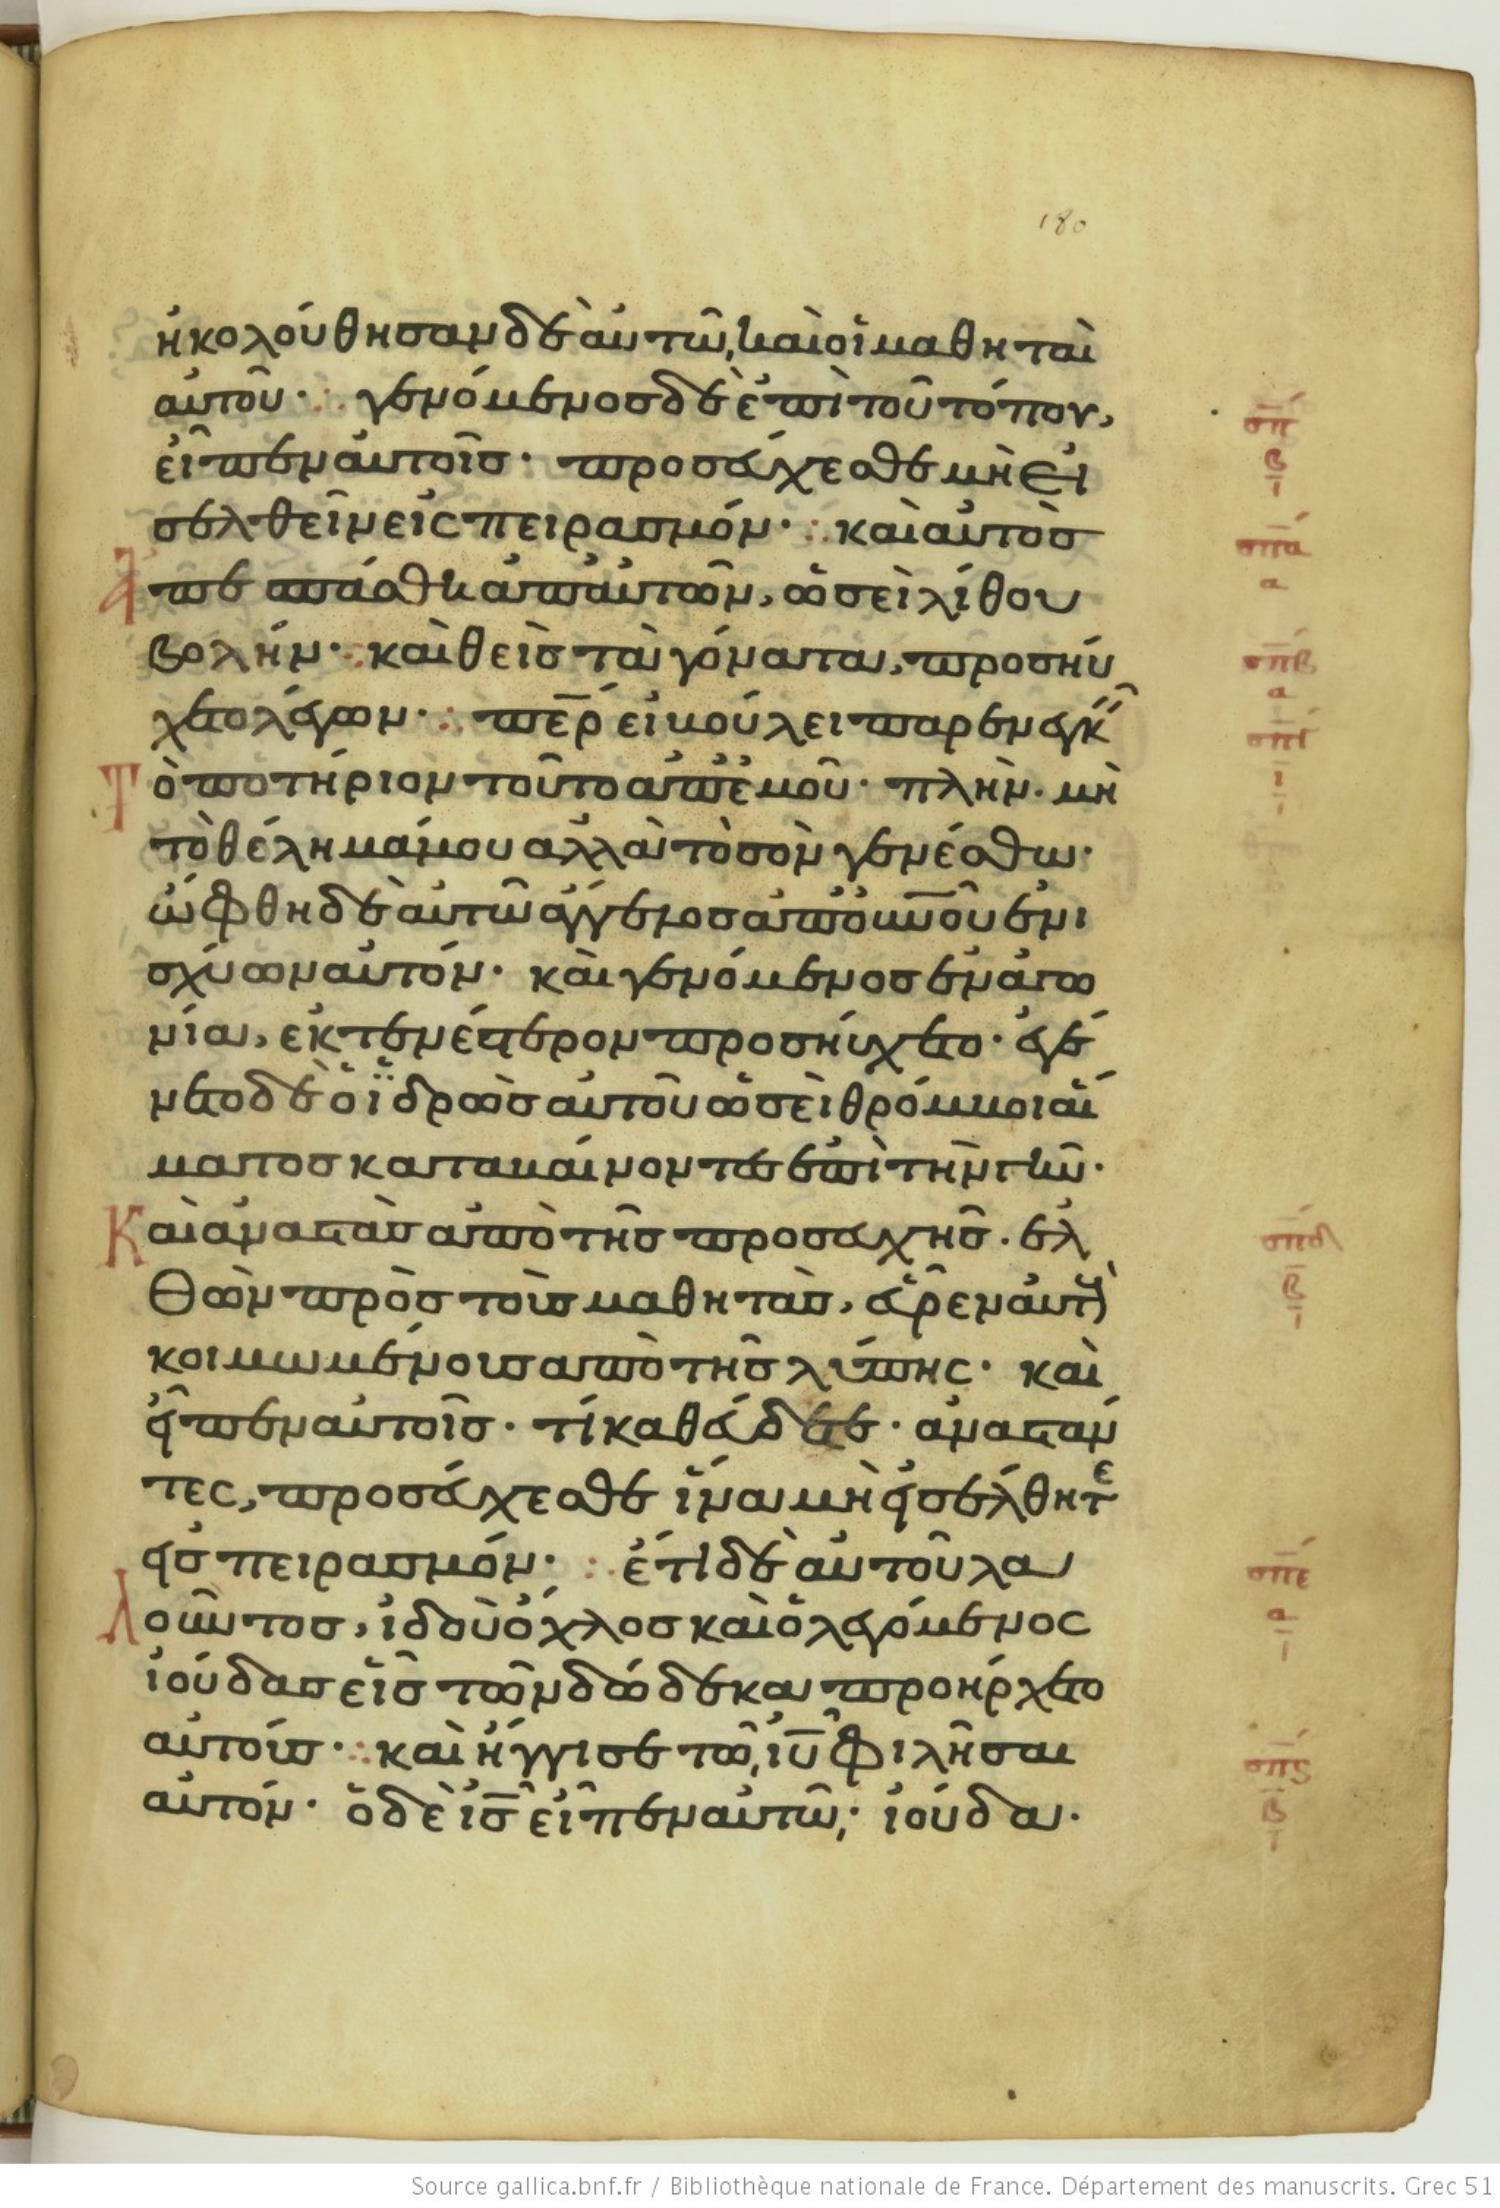 180
ἠκολούθησαν δὲ αὐτῶ, καὶ οἱ μαθηταὶ
αὐτοῦ· γενόμενος δὲ ἐπὶ τοῦ τόπου,
εἶπεν αὐτοῖς· προσεύχεσθε μὴ εἰ
σελθεῖν εἰς πειρασμόν· καὶ αὐτὸς
ἀπεσπάσθη ἀπ' αὐτῶν, ὡσεὶ λίθου
βολήν· καὶ θεὶς τὰ γόνατα, προσηύ
χετο λέγων· περ εἰ βούλει παρενεγκ
Τὸ ποτήριον τοῦτο ἀπ' ἐμοῦ· πλὴν μὴ
τὸ θέλημά μου ἀλλὰ τὸ σὸν γενέσθω·
ὤφθη δὲ αὐτῶ ἄγγελος ἀπὸ οὐνοῦ ἐνι
σχύων αὐτόν· καὶ γενόμενος ἐν ἀγω
νία, ἐκτενέστερον προσηύχετο· ἐγέ
νετο δὲ ὁ ἱδρὼς αὐτοῦ ὡσεὶ θρόμβοι αἵ
ματος καταβαίνοντες ἐπὶ τὴν γῆν·
Καὶ ἀναστὰς ἀπὸ τῆς προσευχῆς· ἐλ
θὼν πρὸς τοὺς μαθητὰς, εὗρεν αὐτοὺς
κοιμωμένους ἀπὸ τῆς λύπης· καὶ
εἶπεν αὐτοῖς· τί καθεύδετε· ἀναστάν
τες, προσεύχεσθε ἵνα μὴ εἰσέλθητε
εἰς πειρασμόν· ἔτι δὲ αὐτοῦ λα
λοῦντος, ἰδοὺ ὄχλος καὶ ὁ λεγόμενος
ἰούδας εἷς τῶν δώδεκα προήρχετο
αὐτούς· καὶ ἤγγισε τῶ ιυ φιλῆσαι
αὐτόν· ὁ δὲ ις εἶπεν αὐτῶ· ἰούδα·
σπ
β
ι
σπα
α
σπβ
α
σπγ
ι
σπδ
β
ι
σπε
α
ι
σπς
β
ι
Source gallica.bnf.fr / Bibliothèque nationale de France. Département des manuscrits. Grec 51